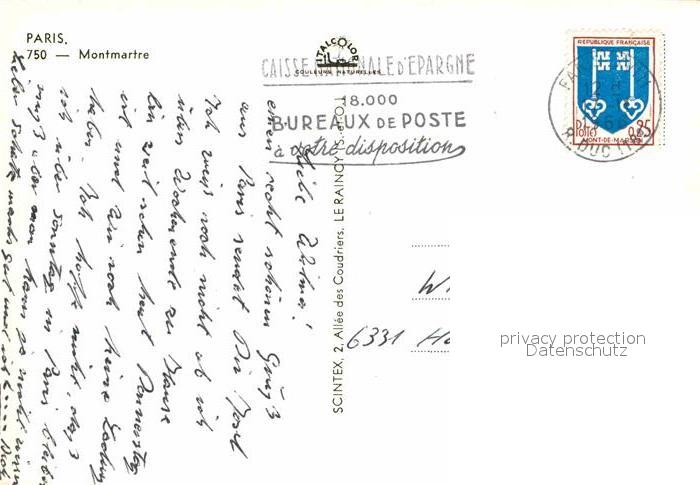 PARIS.
750 — Montmartre
ITALCOLOR
COULEURS NATURELLES
CAISSE NATIONALE d'EPARGNE
18.000
BUREAUX DE POSTE
à votre disposition
REPUBLIQUE FRANÇAISE
POSTES 0,85
MONT-DE-MARSAN
PARIS
R. DUC (18
SCINTEX, 2, Allée des Coudriers, LE RAINCY (S.-et-O.)
Liebe Wilma!
einen recht schönen Gruß
aus Paris sendet Dir Josef
Ich weiß noch nicht ob ich
über Wochenende zu Hause
bin weil schon heut Donnerstag
ist und wir noch keine Ladung
haben. Ich hoffe nicht, daß
ich über Sonntag in Paris bleiben
muß aber man kann ja nicht
W.
6331
privacy protection
Datenschutz